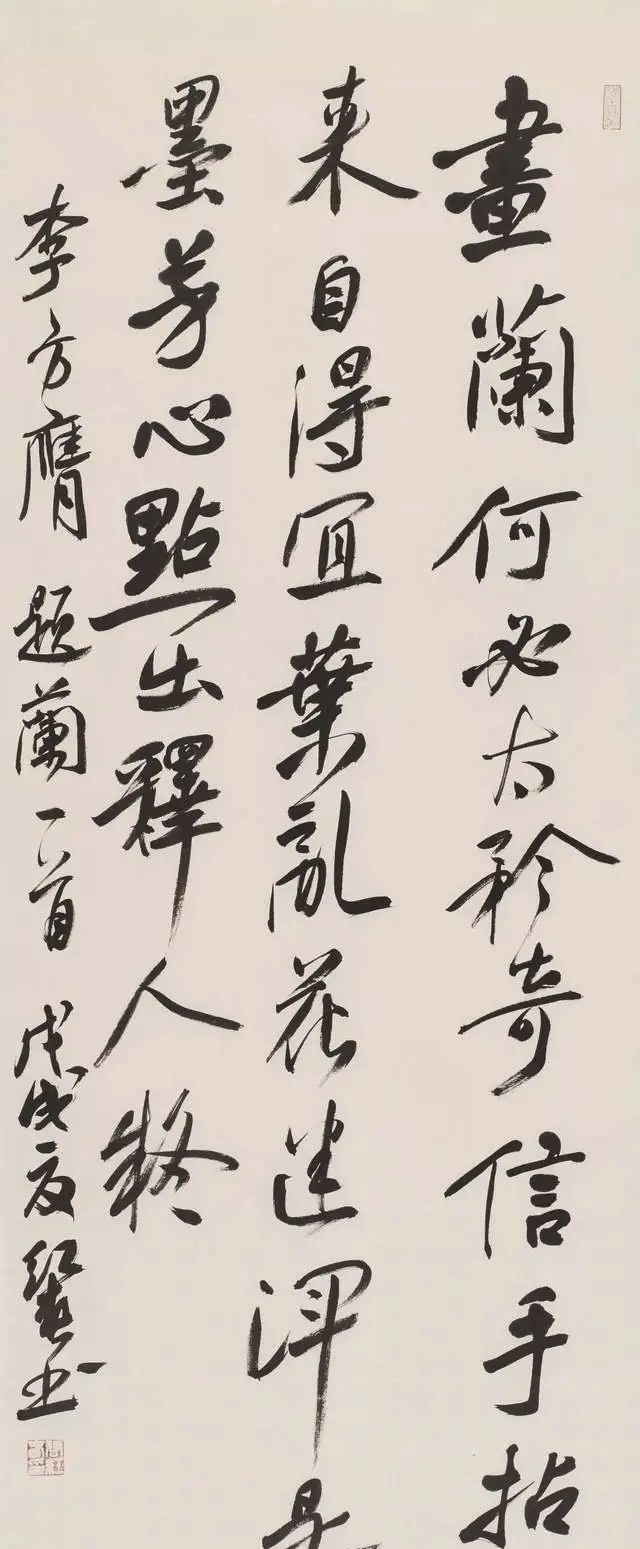 畫蘭何必太矜奇信手拈
来自得宜葉亂花迷渾是
墨芳心點出釋人疑
李方膺題蘭一首 戊戌夏书